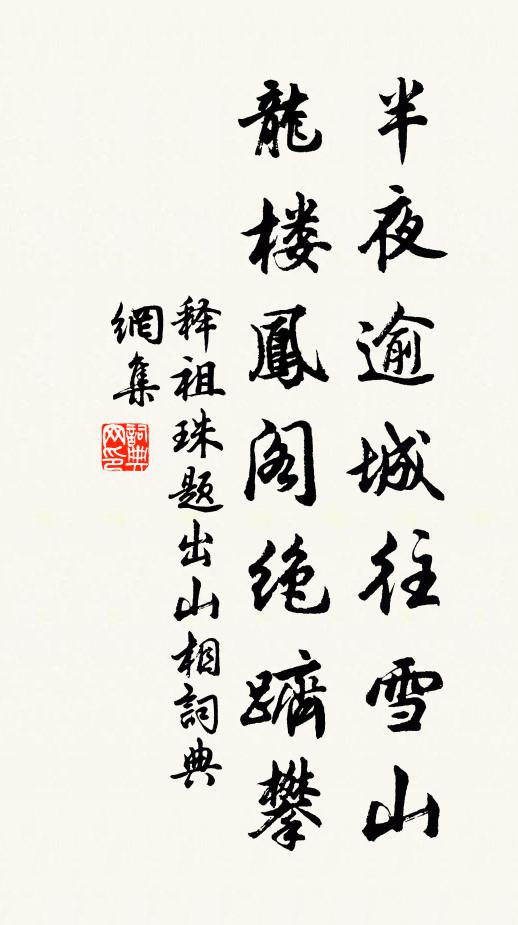 半夜逾城往雪山
龍楼鳳阁绝躋攀
释祖珠题出山相詞典
網集
詞典
网印